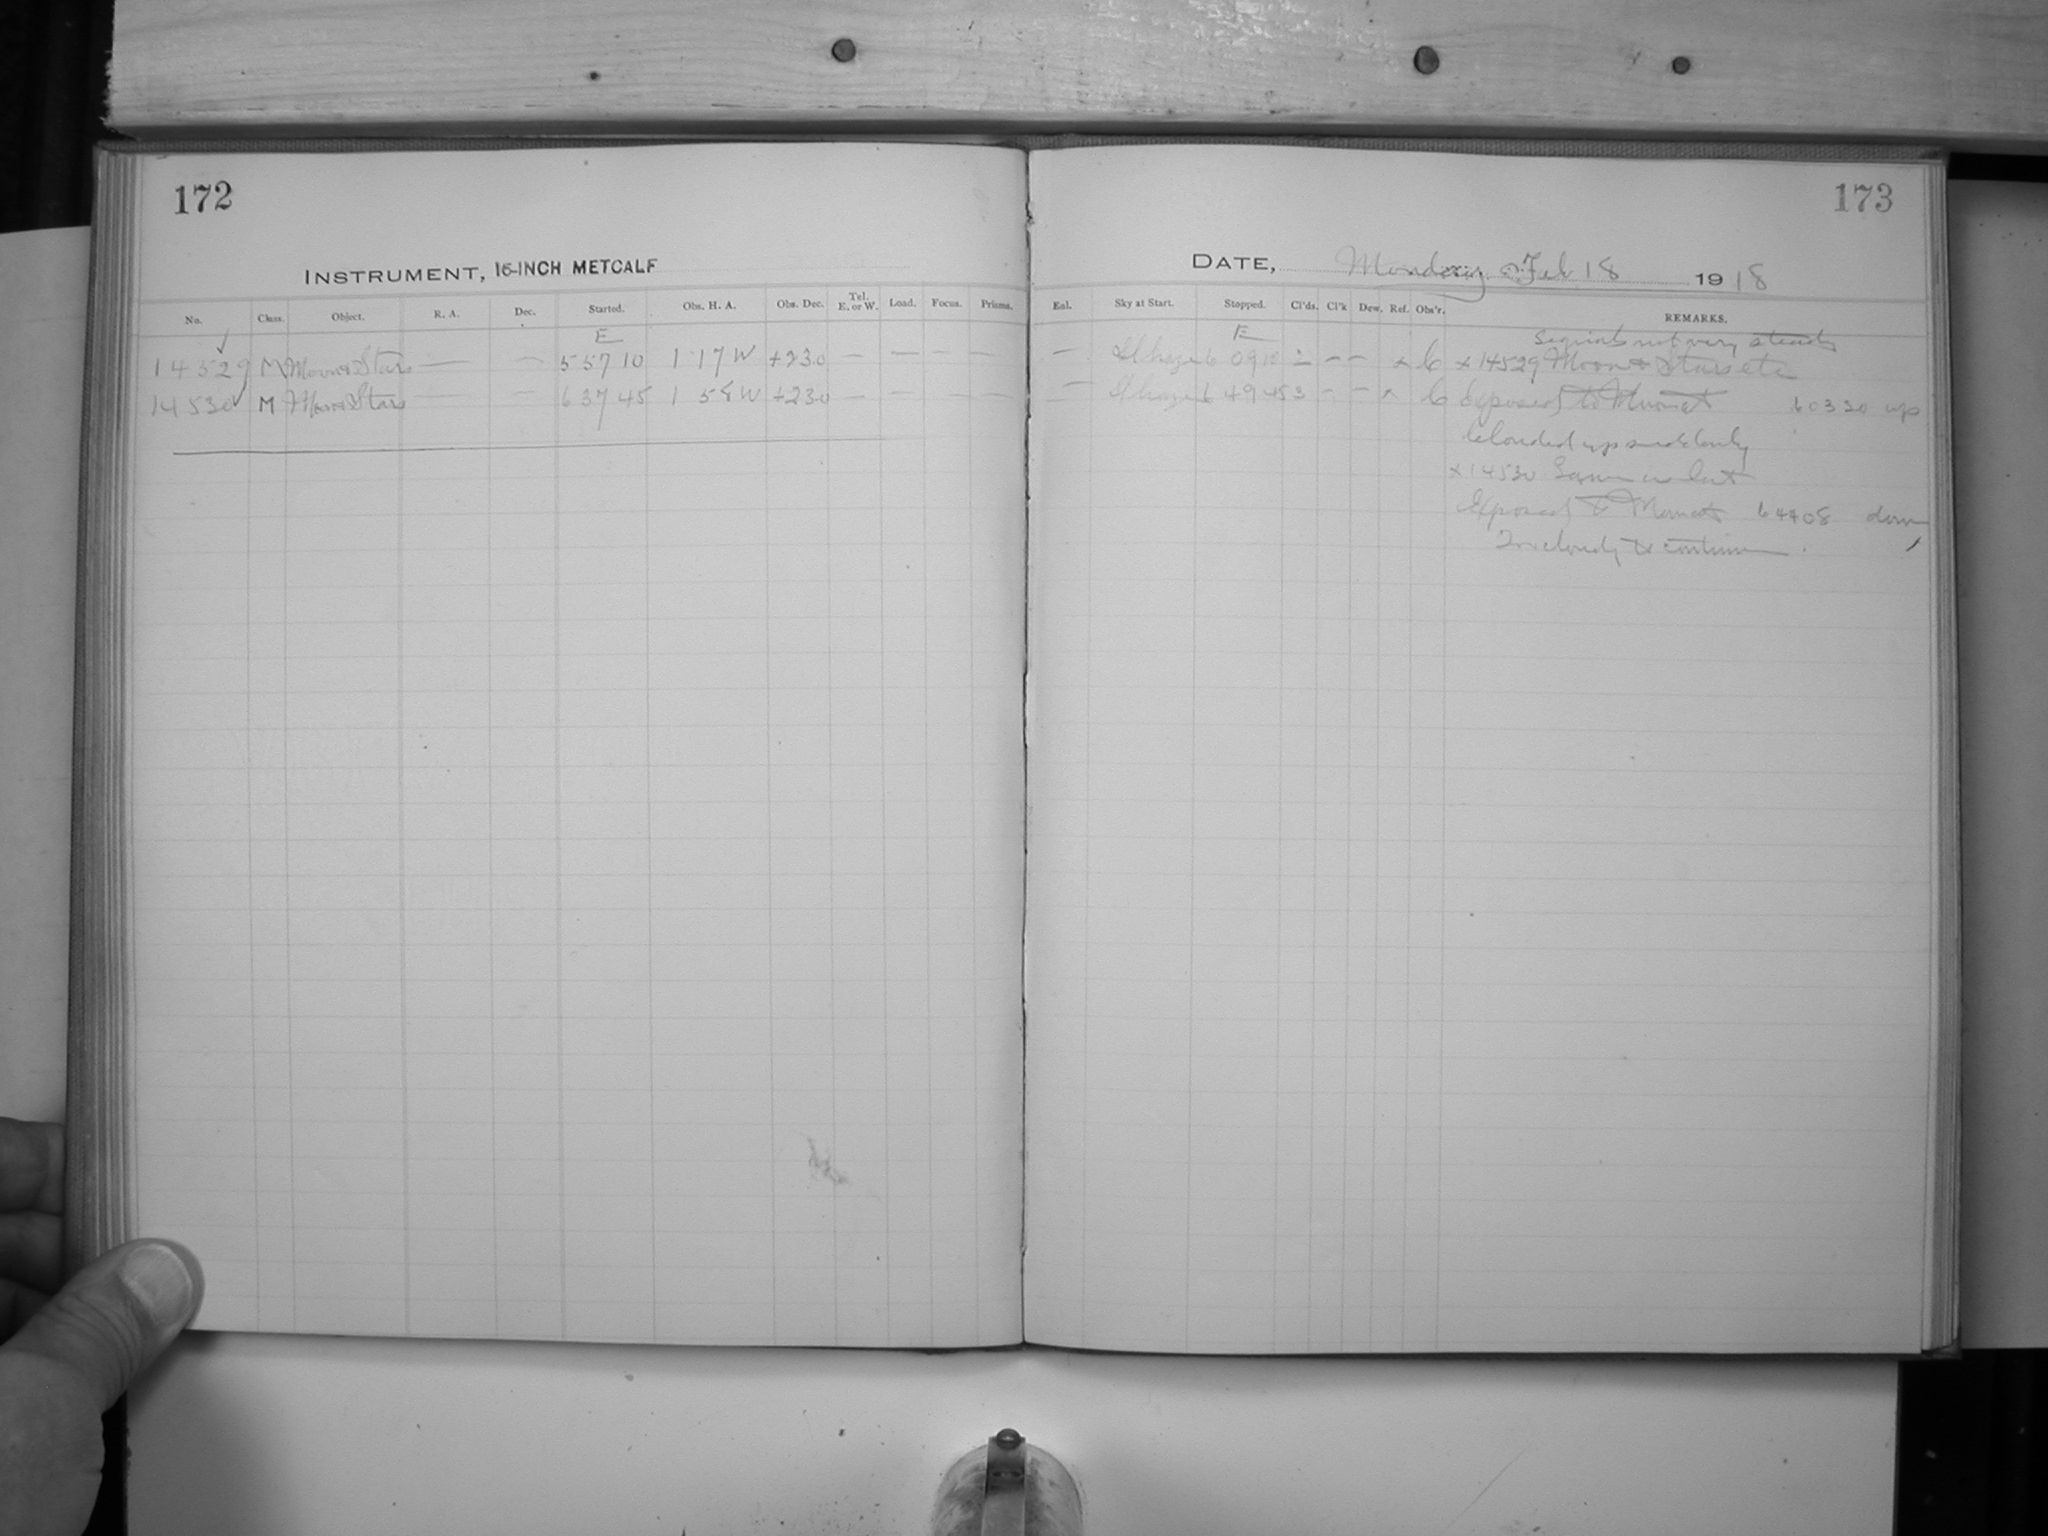 172
INSTRUMENT, 16-INCH METCALF
No. Class. Object. R. A. Dec. Started. Obs. H. A. Obs. Dec. Tel. E. or W. Load. Focus. Prisms.
E
14529 M Moon & Stars — — 5 57 10 1 17 W +23.0 — — — — —
14530 M Moon & Stars — — 6 37 45 1 58 W +23.0 — — — — —
173
DATE, Monday Feb 18 1918
Enl. Sky at Start. Stopped. Cl'ds. Cl'k Dew. Ref. Obs'r. REMARKS.
E
not very steady
— haze 6 09 10 2 – – x C x 14529 Moon & Stars etc
— haze 6 49 45 3 – – x C Exposed to Moon at 6 03 20 up
Clouded up suddenly
x 14530 Same as last
Exposed to Moon at 6 44 08 down
Too cloudy to continue.